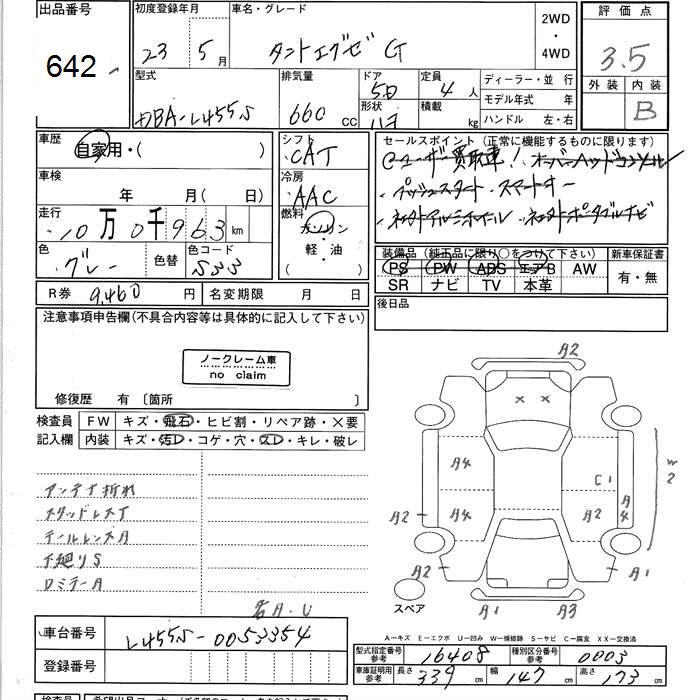 出品番号 初度登録年月 車名・グレード 2WD・4WD 評価点
642 23年 5月 タントエグゼ G 3.5
型式 排気量 ドア 形状 定員 積載 ディーラー・並行 外装 内装
DBA-L455S 660 CC 5D ハコ 4人 kg モデル年式 年 B
ハンドル 左・右
車歴 自家用・( ) シフト CAT セールスポイント (正常に機能するものに限ります)
ユーザー買取車! オーバーヘッドコンソール
車検 年 月( 日) 冷房 AAC プッシュスタート・スマートキー
走行 10万0千963km 燃料 ガソリン・軽・油
色 グレー 色替 色コード S33 装備品 (純正品に限り○をつけて下さい) 新車保証書
PS PW ABS エアB AW 有・無
SR ナビ TV 本革
R券 9,460円 名変期限 月 日 後日品
注意事項申告欄(不具合内容等は具体的に記入して下さい)
ノークレーム車
no claim
修復歴 有 〔箇所 〕
検査員 FW キズ・飛石・ヒビ割・リペア跡・×要
記入欄 内装 キズ・汚レ・コゲ・穴・スレ・キレ・破レ
アンテナ折れ
スタッドレスT
テールレンズA
下廻りS
ロミテーA
A2
× ×
A4 C1 W2
A2 A4 A2 A4
A2 A1
スペア A1 A3
右A.U
A-キズ E-エクボ U-凹み W-補修跡 S-サビ C-腐食 XX-交換済
車台番号 L455S-0053354
型式指定番号 参考 16408 種別区分番号 参考 0003
登録番号 車庫証明用 参考 長さ 339cm 幅 147cm 高さ 173cm